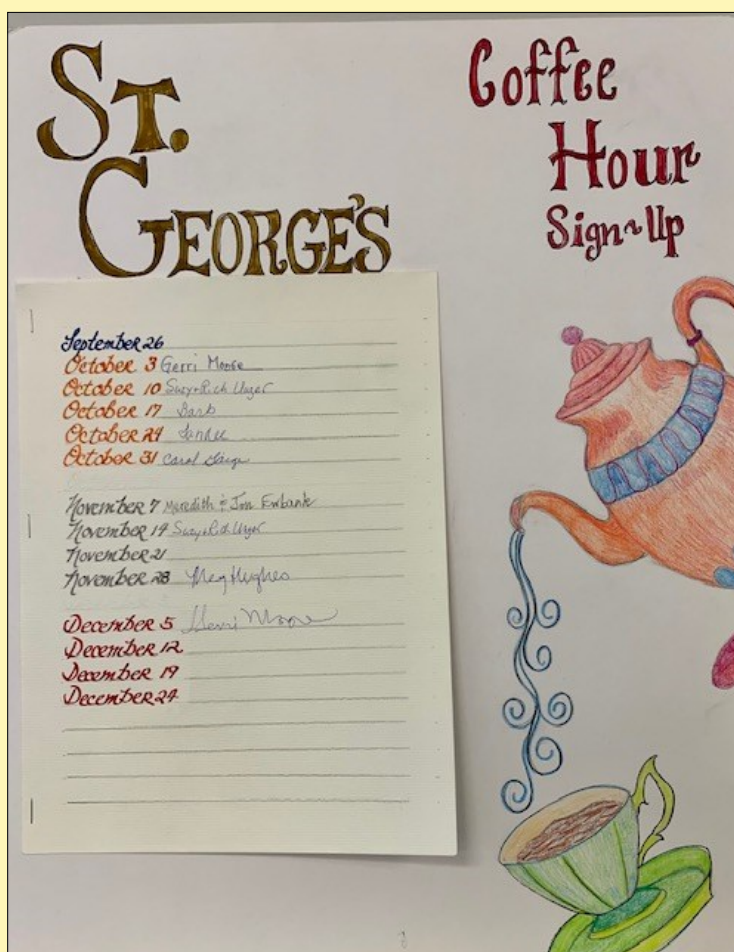 St.
George's
Coffee
Hour
Sign~Up
September 26
October 3 Gerri Moore
October 10 Suzy+Rich Unger
October 17 Barb
October 24
October 31 Carol
November 7 Meredith & Jon Ewbank
November 14 Suzy+Rich Unger
November 21
November 28 Meg Hughes
December 5 Gerri Moore
December 12
December 19
December 24